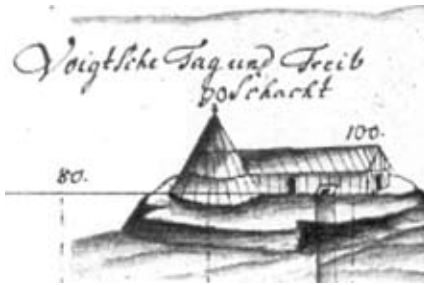 Voigtsche Tag und Treib
90 Schacht
100.
80.